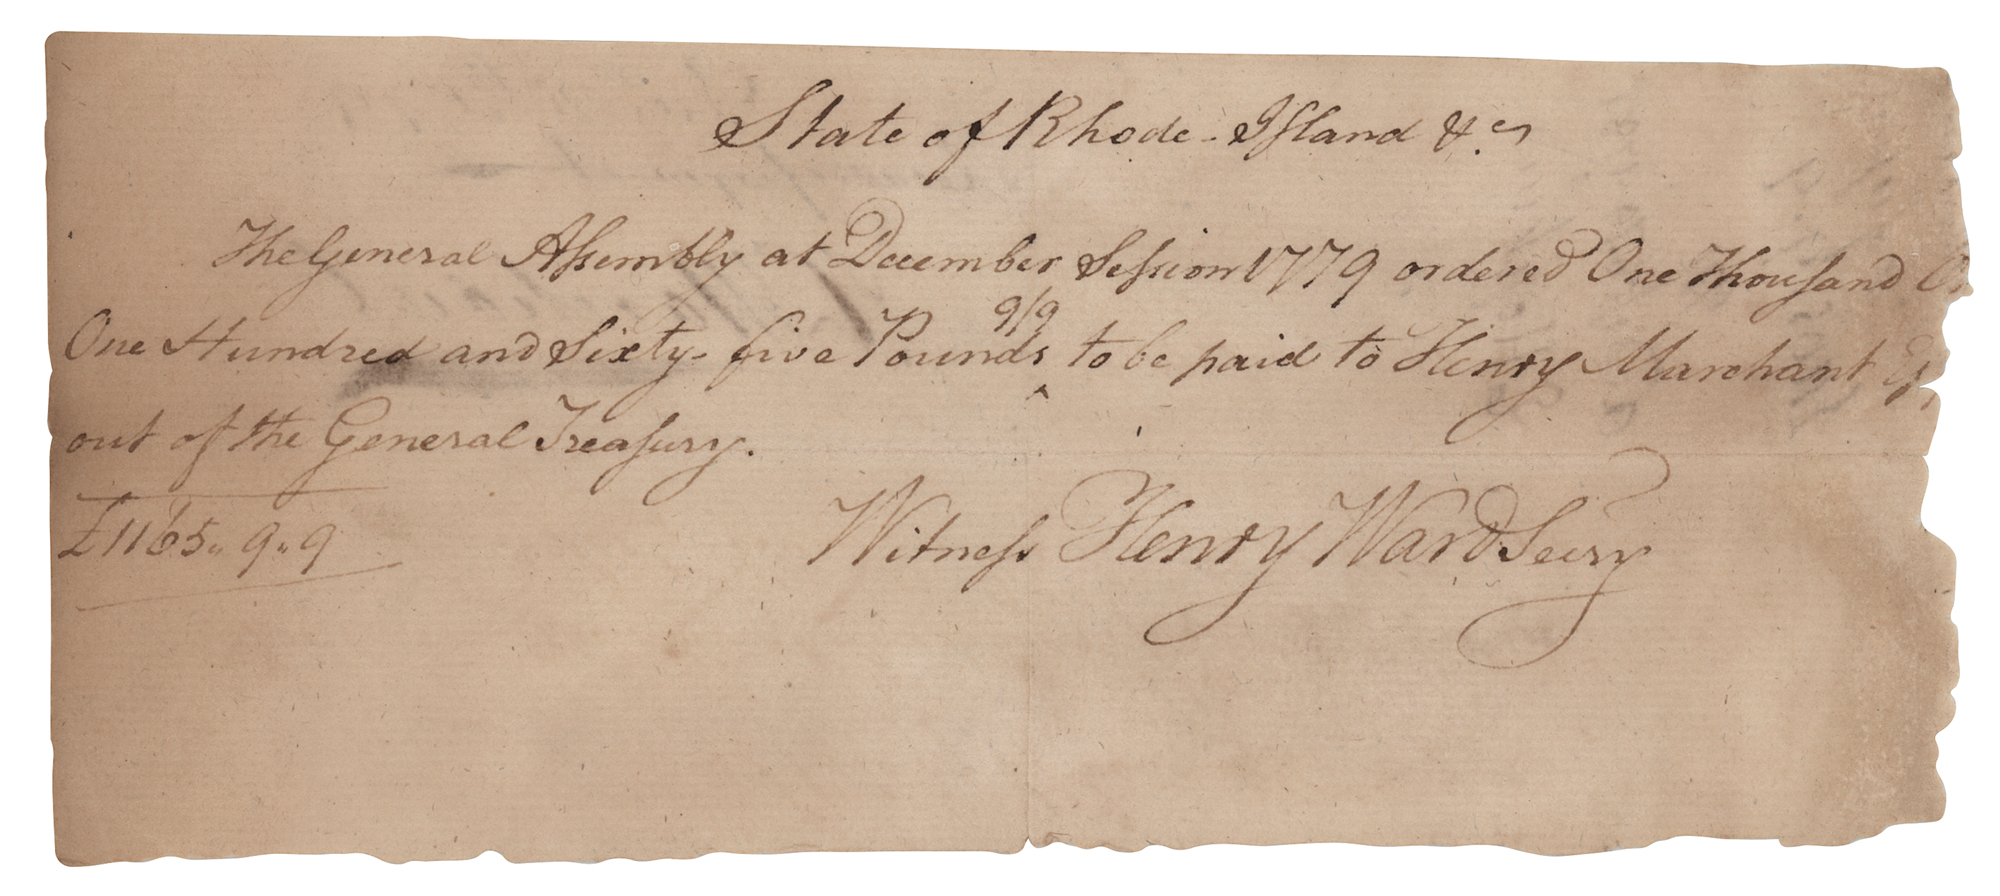 State of Rhode-Island &c.
The General Assembly at December Session 1779 ordered One Thousand
9/9
One Hundred and Sixty-five Pounds ‸ to be paid to Henry Marchant Es
out of the General Treasury.
£1165„ 9„ 9
Witness Henry Ward Secry